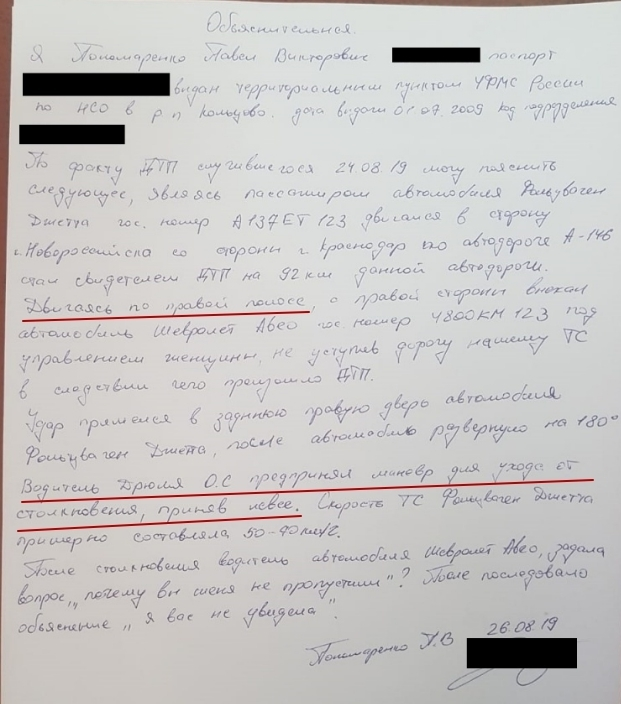 Объяснительная.
Я Пономаренко Павел Викторович паспорт
выдан территориальным пунктом УФМС России
по НСО в р п Кольцово. дата выдачи 01.07.2009 код подразделения
По факту ДТП случившегося 24.08.19 могу пояснить
следующее, являясь пассажиром автомобиля Фольцваген
Джетта гос. номер А137ЕТ 123 двигался в сторону
г. Новороссийска со стороны г. Краснодар по автодороге А-146
стал свидетелем ДТП на 92 км данной автодороги.
Двигаясь по правой полосе, с правой стороны выехал
автомобиль Шевролет Авео гос. номер У800КМ 123 под
управлением женщины, не уступив дорогу нашему ТС
в следствии чего произошло ДТП.
Удар пришелся в заднюю правую дверь автомобиля
Фольцваген Джетта, после автомобиль развернуло на 180°
Водитель Дрюля О.С предпринял маневр для ухода от
столкновения, приняв левее. Скорость ТС Фольцваген Джетта
примерно составляла 50-90км/г.
После столкновения водитель автомобиля Шевролет Авео, задала
вопрос „почему вы меня не пропустили"? После последовало
объяснение „я вас не увидела".
26.08.19
Пономаренко П.В